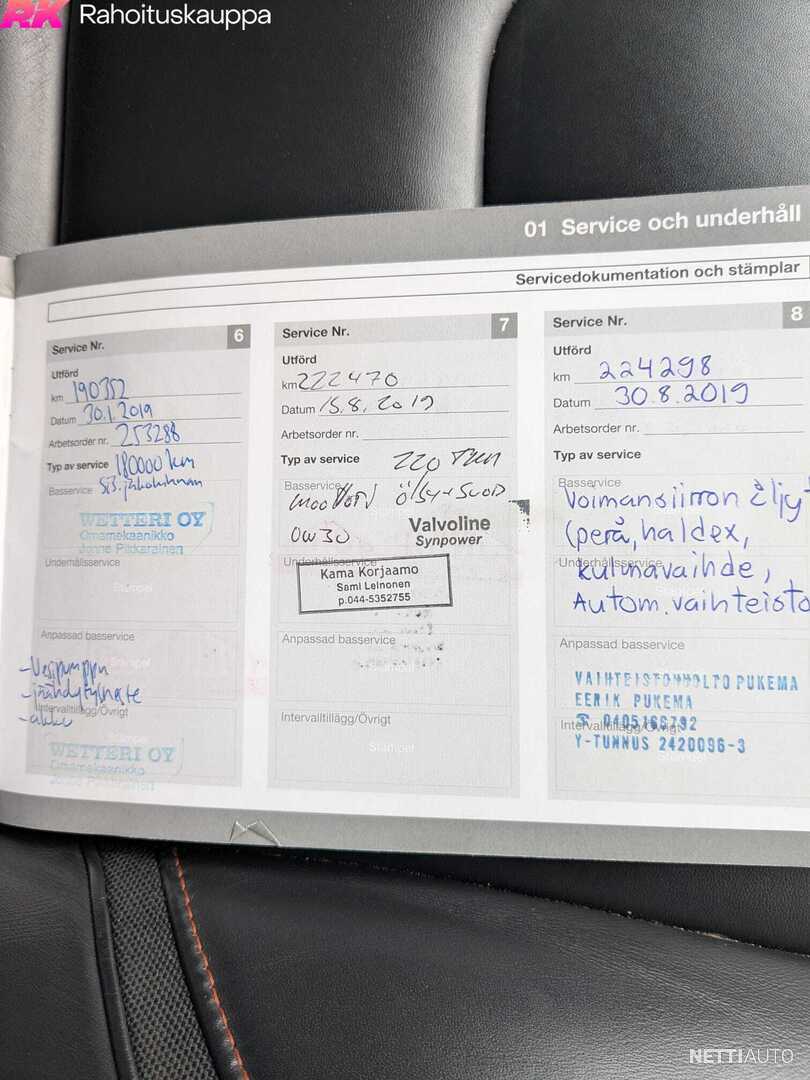 RK Rahoituskauppa
01 Service och underhåll
Servicedokumentation och stämplar
Service Nr. 6
Utförd
km 190352
Datum 30.1.2019
Arbetsorder nr. 253288
Typ av service 180000 km
Basservice sis. jakohihnan
WETTERI OY
Omamekaanikko
Janne Pitkärainen
Underhållsservice
Stämpel
Anpassad basservice
-Vesipumppu
Stämpel
-jäähdytysneste
Intervalltillägg/Övrigt
-akku
WETTERI OY
Omamekaanikko
Service Nr. 7
Utförd
km 222470
Datum 15.8.2019
Arbetsorder nr.
Typ av service 220 TKM
Basservice
MOOTTORI ÖLJY+SUOD
0W30
Valvoline
Synpower
Underhållsservice
Kama Korjaamo
Sami Leinonen
p.044-5352755
Anpassad basservice
Stämpel
Intervalltillägg/Övrigt
Stämpel
Service Nr. 8
Utförd
km 224298
Datum 30.8.2019
Arbetsorder nr.
Typ av service
Basservice
Voimansiirron öljy
(perä, haldex,
Underhållsservice
kulmavaihde,
Autom.vaihteisto
Anpassad basservice
VAIHTEISTOHUOLTO PUKEMA
EERIK PUKEMA
☎ 0405166792
Intervalltillägg/Övrigt
Y-TUNNUS 2420096-3
NETTIAUTO